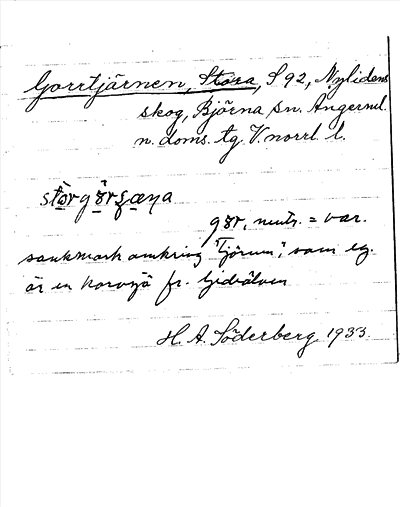 Gorrtjärnen, Stora, S 92, Nylidens
skog, Björna sn. Ångerml.
n. doms. tg V. norrl. l.
stòrgö̀rꞩæɳa
gör, neutr. = var.
sankmark omkring "Tjörnen", som eg.
är en korvsjö fr. Gideälven
H. A. Söderberg 1933